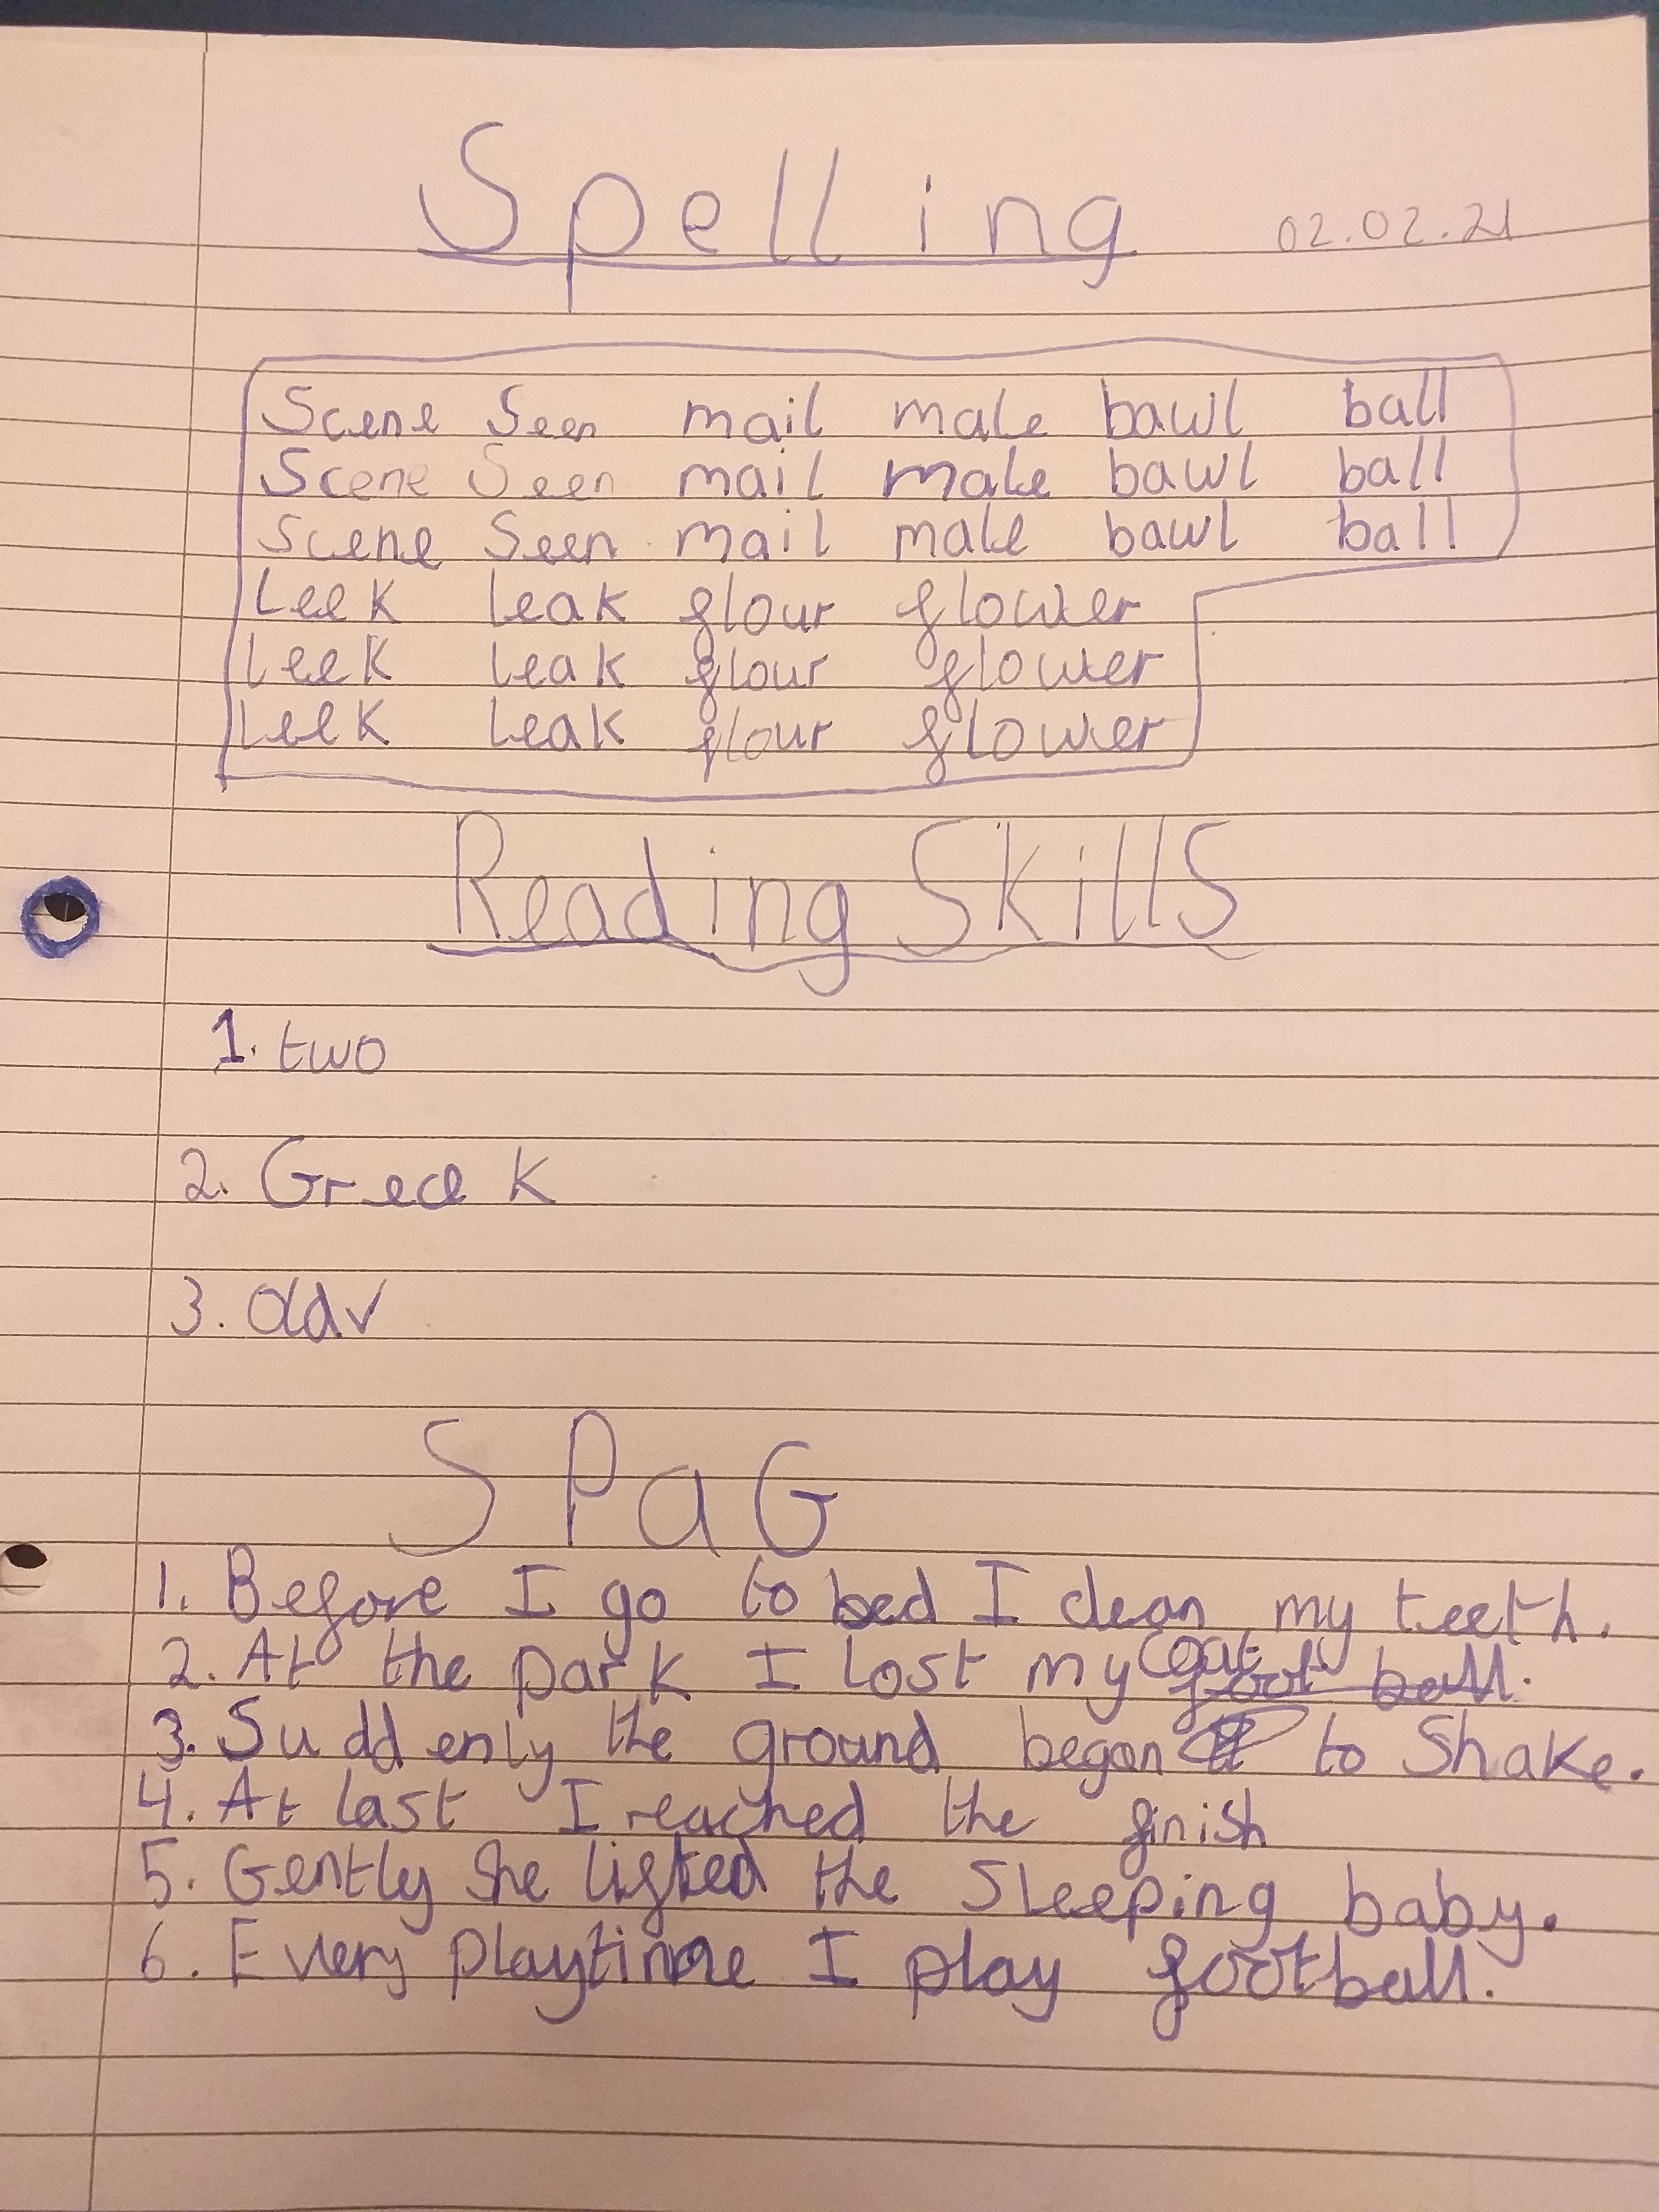 Spelling 02.02.21
Scene Seen mail male bawl ball
Scene Seen mail male bawl ball
Scene Seen mail male bawl ball
Leek leak flour flower
Leek leak flour flower
Leek leak flour flower
Reading Skills
1. two
2. Greek
3.
SPaG
1. Before I go to bed I clean my teeth.
2. At the park I lost my coat foot ball.
3. Suddenly the ground began to Shake.
4. At last I reached the finish
5. Gently she lifted the sleeping baby.
6. Every playtime I play football.